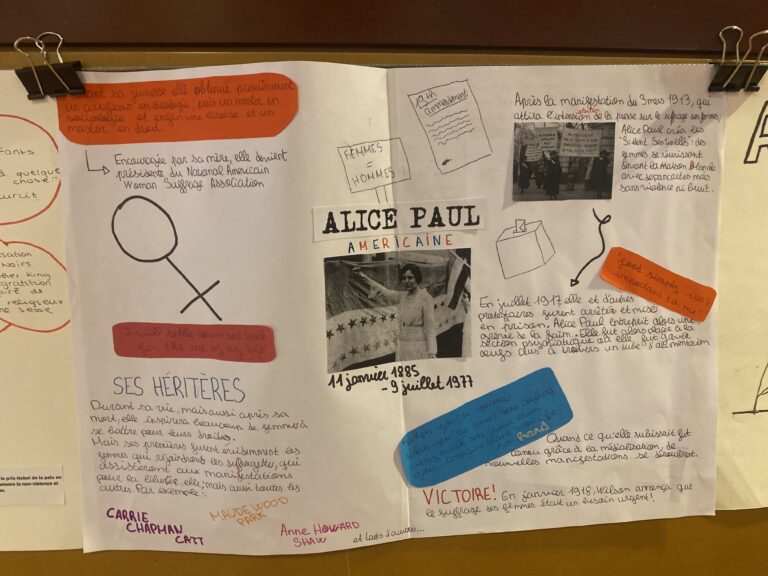 sa jeunesse elle obtenue premièrement
un certificas en biologie, puis un master en
sociologie et enfin une license et un
master en droit.
Encouragée par sa mère, elle devient
présidente du National Americain
Woman Suffrage Association
I will settle down
for the rest of my life
SES HÉRITÈRES
Durant sa vie, mais aussi après sa
mort, elle inspirera beaucoup de femmes à
se battre pour leurs droites.
Mais ses premières furent évidemment les
femmes qui rejoindront les suffragettes, qui
assistèrent aux manifestations
pour la libérée elle, mais aussi toutes les
autres. Par exemple:
CARRIE
CHAPMAN
CATT
MAUDE WOOD
PARK
Anne Howard
SHAW
et tants d'autres...
19th
ammendement
FEMMES
=
HOMMES
ALICE PAUL
AMERICAINE
11 janvier 1885
- 9 juillet 1977
Après la manifestation du 3 mars 1913, que
attira l'attention de la presse sur le sufrage des femmes,
Alice Paul créa les
"Silent Sentinels": des
femmes se réunissant
devant la Maison Blanche
avec ses pancartes mais
sans violence ni bruit.
important to me
En juillet 1917 elle et d'autres
protestaires furent arrêtés et mises
en prison. Alice Paul entreprit alors une
grève de la faim. Elle fut alors placé à la
section psychiatrique où elle fut gavée
œufs dus à travers un tube d'alimentation
Quand ce qu'elle subissait fut
connu grâce à la médialisation, de
nouvelles manifestations se déroulèrent.
VICTOIRE! En janvier 1918, Wilson annonça que
le suffrage des femmes était un besoin urgent!
fants
à quelque
chose"
isation
Noirs
ther King
religieux
le prix Nobel de la paix en
la non-violence et